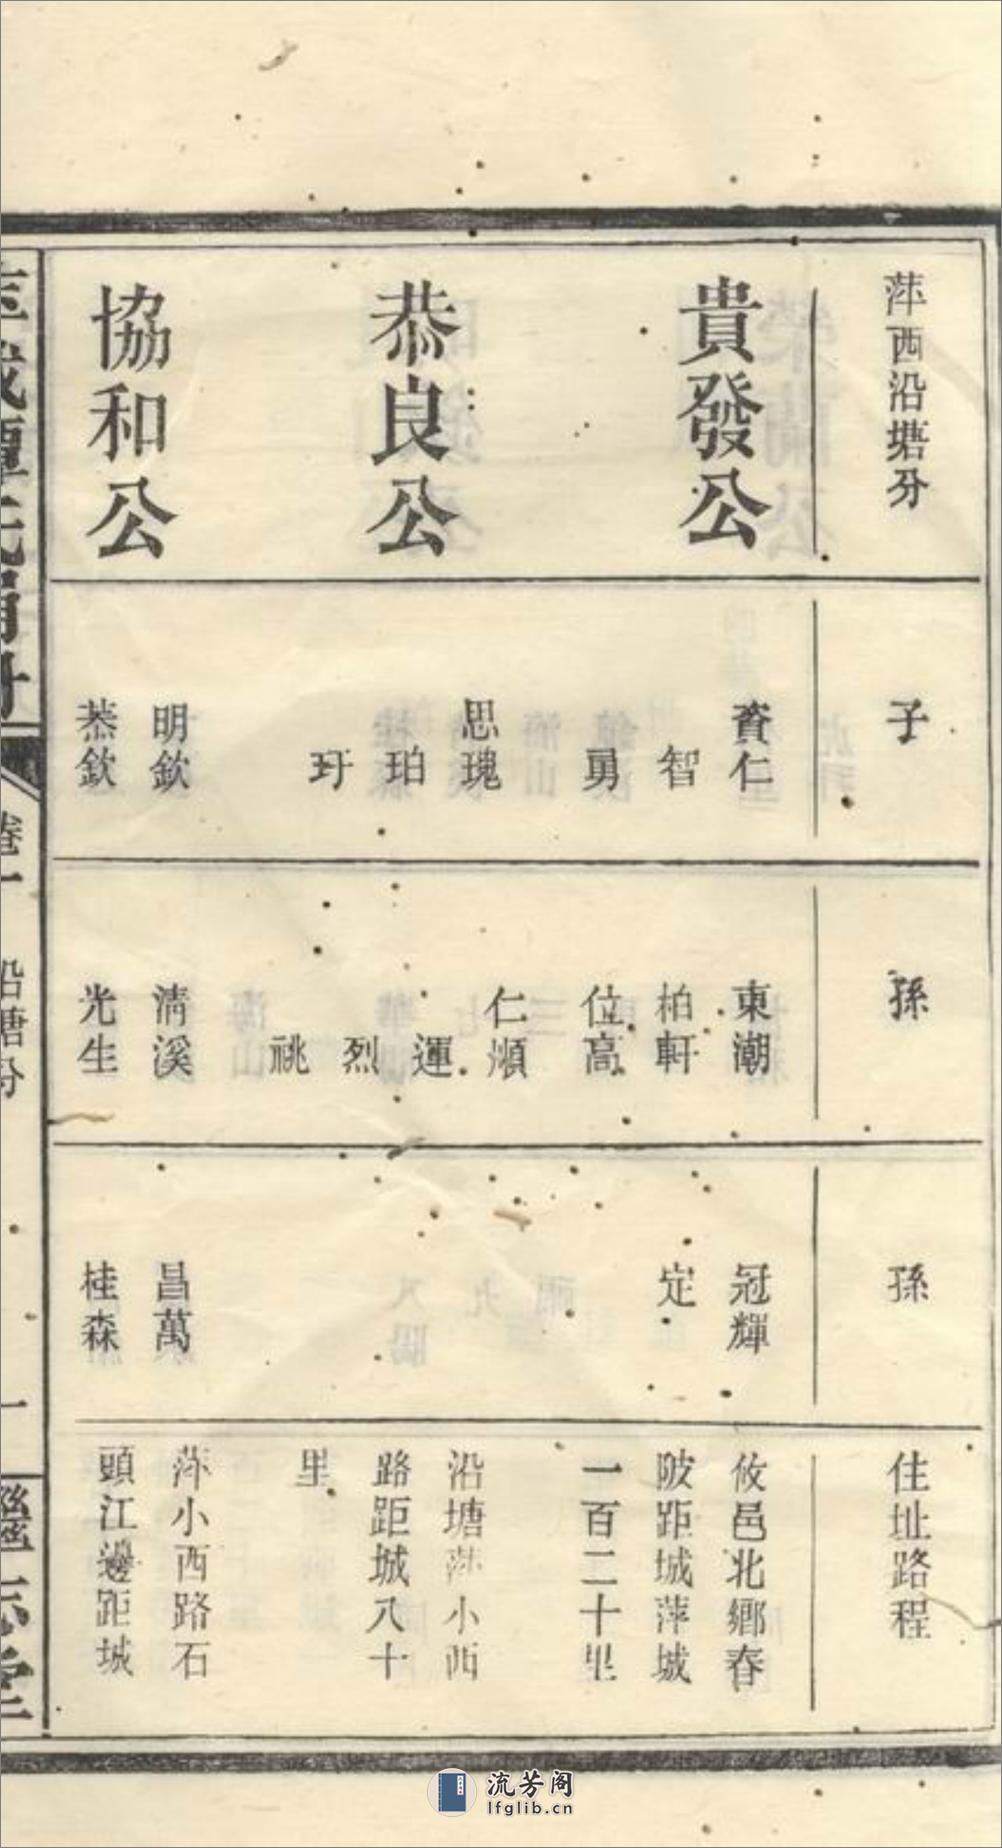 萍西沿塘分
子
孫
孫
住址路程
貴發公
資仁
智
勇
東潮
柏軒
位高
冠輝
定
攸邑北鄉春
陂距城萍城
一百二十里
恭良公
思瑰
珀
玗
仁順
運
烈
祧
沿塘萍小西
路距城八十
里
協和公
明欽
恭欽
清溪
光生
昌萬
桂森
萍小西路石
頭江邊距城
卷一
沿塘分
一
繼志堂
流芳阁
lfglib.cn